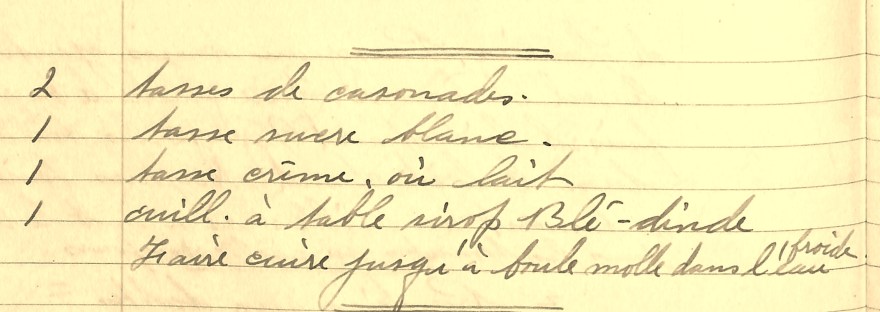 2 tasses de casonades.
1 tasse sucre blanc.
1 tasse crême, où lait
1 cuill. à table sirop Blé-dinde
Faire cuire jusqu'à boule molle dans l'eau froide.